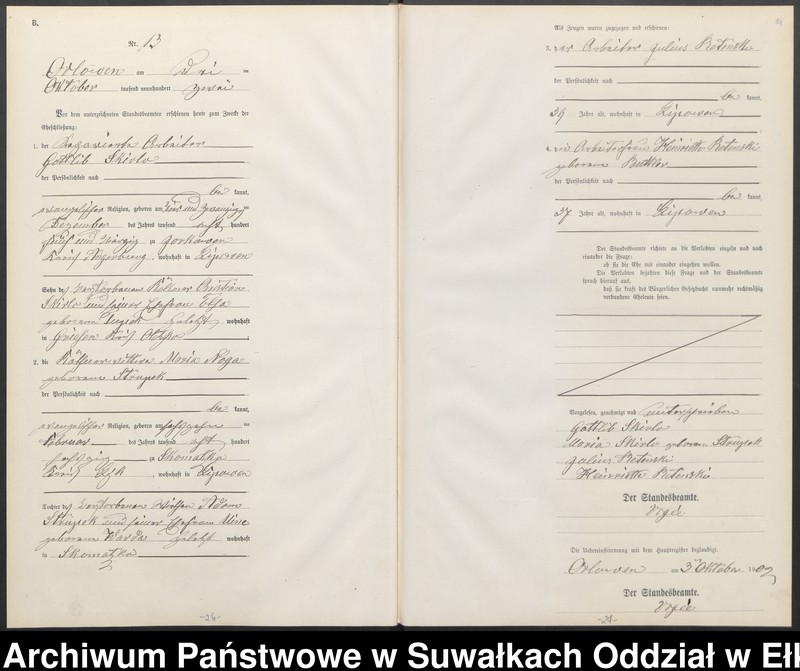 B.
Nr. 13
Orlowen am drei ten
Oktober tausend neunhundert zwei
Vor dem unterzeichneten Standesbeamten erschienen heute zum Zwecke der
Eheschließung:
1. der Arbeiter
Gottlieb Skirlo
der Persönlichkeit nach
be kannt,
evangelischer Religion, geboren am vier und zwanzig ten
Dezember des Jahres tausend acht hundert
fünf und vierzig zu
Kreis Angerburg, wohnhaft in Lipowen
Sohn des verstorbenen
Skirlo und seiner Ehefrau
geborenen zuletzt wohnhaft
in Kreis Oletzko
2. die Maria
geborene Struzek
der Persönlichkeit nach
be kannt,
evangelischer Religion, geboren am sechszehn ten
Februar des Jahres tausend acht hundert
sechszig zu Skomatzko
Kreis Lyk, wohnhaft in Lipowen
Tochter des verstorbenen Adam
Struzek und seiner Ehefrau Mine
geborenen Warda zuletzt wohnhaft
in Skomatzko
2
-26-
Als Zeugen waren zugezogen und erschienen:
3. der Arbeiter Julius Retinski
der Persönlichkeit nach
be kannt,
39 Jahre alt, wohnhaft in Lipowen
4. die Arbeiterfrau Henriette Retinski
geborene
der Persönlichkeit nach
be kannt,
37 Jahre alt, wohnhaft in Lipowen
Der Standesbeamte richtete an die Verlobten einzeln und nach
einander die Frage:
ob sie die Ehe mit einander eingehen wollen.
Die Verlobten bejahten diese Frage und der Standesbeamte
sprach hierauf aus,
daß sie kraft des Bürgerlichen Gesetzbuchs nunmehr rechtmäßig
verbundene Eheleute seien.
Vorgelesen, genehmigt und unterschrieben
Gottlieb Skirlo
Maria Skirlo geborene Struzek
Julius Retinski
Henriette Retinski
Der Standesbeamte.
Die Uebereinstimmung mit dem Hauptregister beglaubigt.
Orlowen am 3. Oktober 1902
Der Standesbeamte.
-27-
Archiwum Państwowe w Suwałkach Oddział w Eł